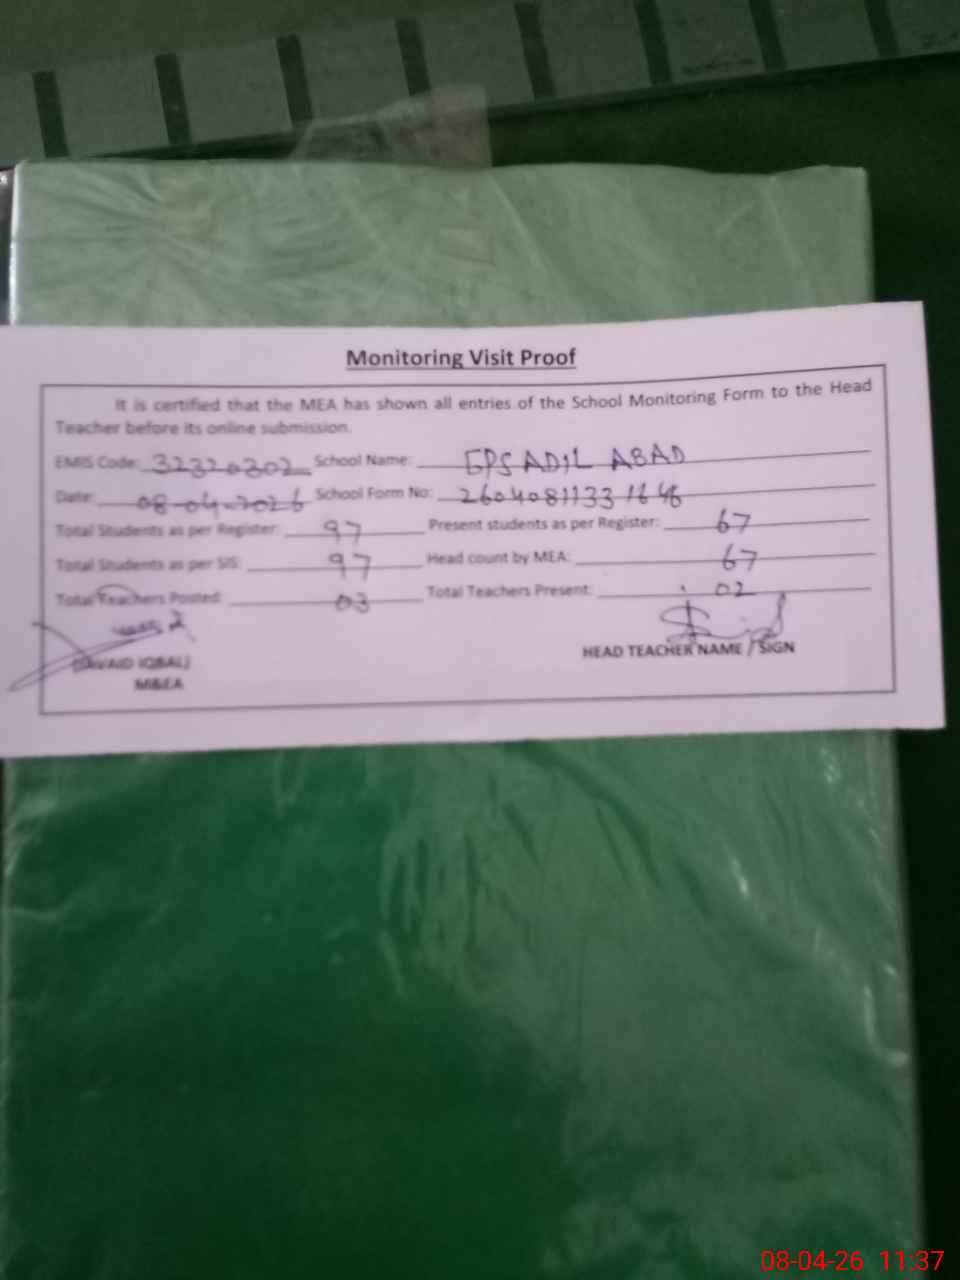 Monitoring Visit Proof
It is certified that the MEA has shown all entries of the School Monitoring Form to the Head
Teacher before its online submission.
EMIS Code: 32320302 School Name: GPS ADIL ABAD
Date: 08-04-2026 School Form No: 2604081133 1646
Total Students as per Register: 97 Present students as per Register: 67
Total Students as per SIS: 97 Head count by MEA: 67
Total Teachers Posted: 03 Total Teachers Present: 02
(JAVAID IQBAL) HEAD TEACHER NAME / SIGN
M&EA
08-04-26 11:37